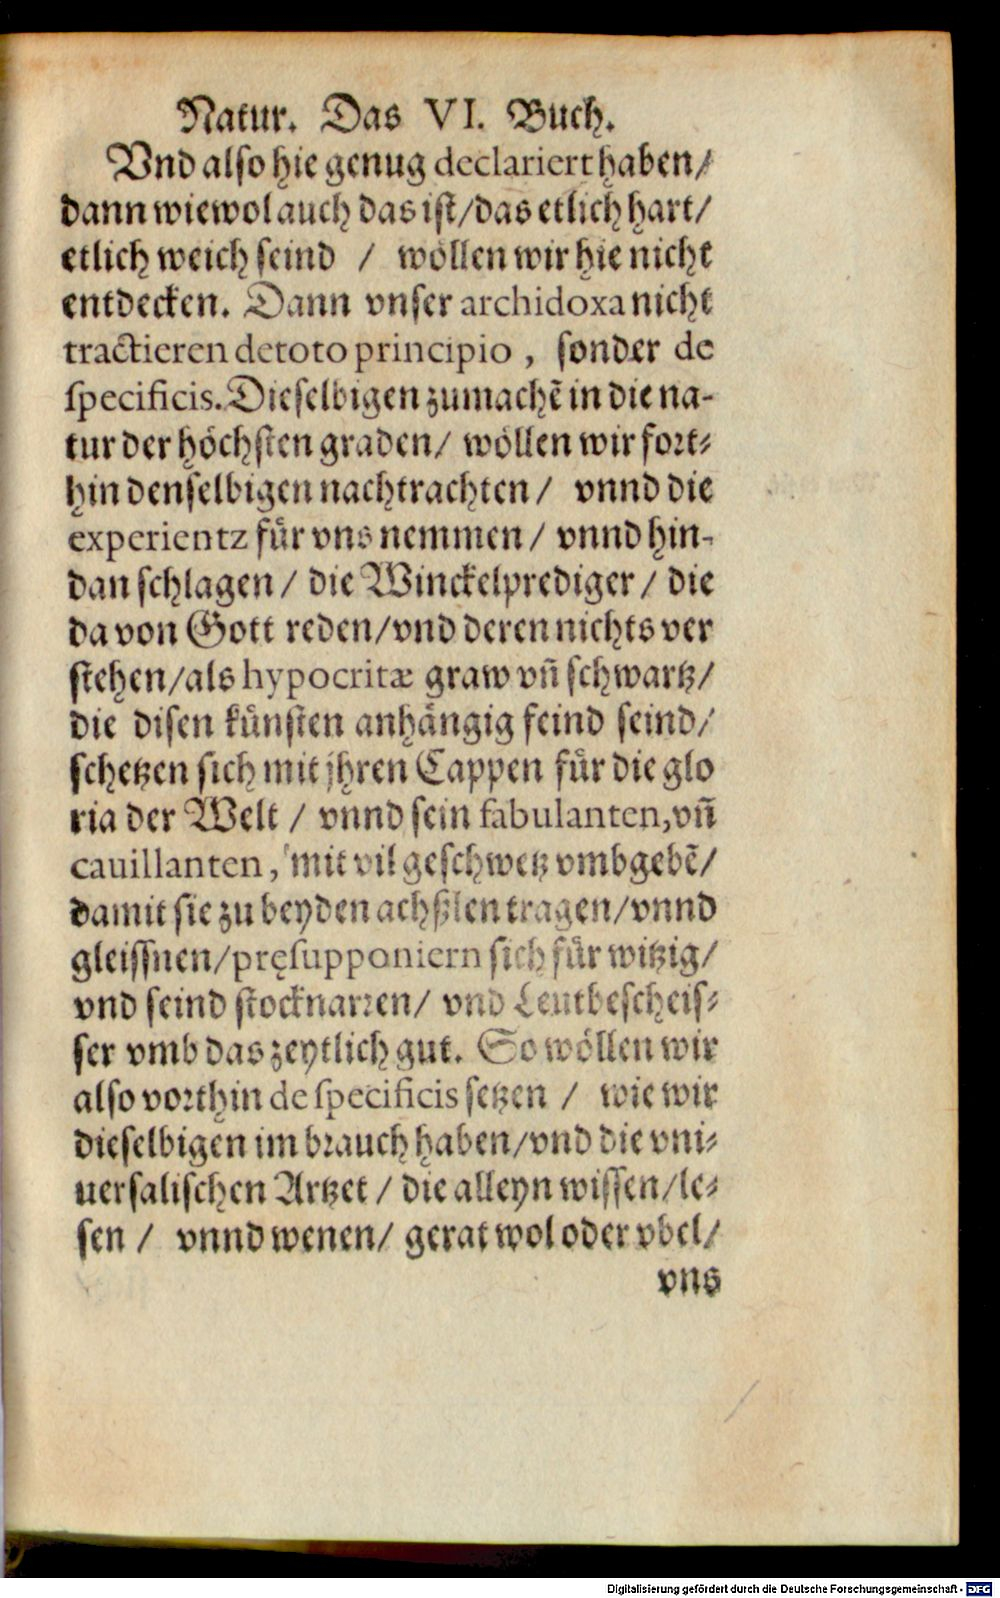 Natur. Das VI. Buch.
Vnd also hie genug declariert haben/
dann wiewol auch das ist/das etlich hart/
etlich weich seind / wöllen wir hie nicht
entdecken. Dann vnser archidoxa nicht
tractieren de toto principio , sonder de
specificis. Dieselbigen zumachē in die na-
tur der höchsten graden/ wöllen wir fort-
hin denselbigen nachtrachten/ vnnd die
experientz für vns nemmen/ vnnd hin-
dan schlagen/ die Winckelprediger/ die
da von Gott reden/vnd deren nichts ver
stehen/als hypocritæ graw vn̄ schwartz/
die disen künsten anhängig feind seind/
schetzen sich mit jhren Cappen für die glo
ria der Welt / vnnd sein fabulanten, vn̄
cauillanten, mit vil geschwetz vmbgebē/
damit sie zu beyden achßlen tragen/vnnd
gleissnen/pręsupponiern sich für witzig/
vnd seind stocknarren/ vnd Leutbescheis-
ser vmb das zeytlich gut. So wöllen wir
also vorthin de specificis setzen / wie wir
dieselbigen im brauch haben/vnd die vni-
uersalischen Artzet / die alleyn wissen/le-
sen / vnnd wenen/ gerat wol oder vbel/
vns
Digitalisierung gefördert durch die Deutsche Forschungsgemeinschaft - DFG